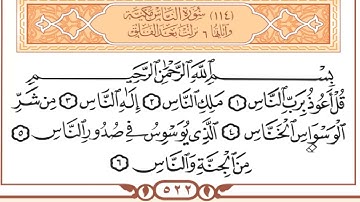 (١١٤) سُورَةُ النَّاسِ مَكِّيَّة
وَآيَاتُهَا ٦ نَزَلَتْ بَعْدَ الفَلَقِ
بِسْمِ ٱللَّهِ ٱلرَّحْمَٰنِ ٱلرَّحِيمِ
قُلْ أَعُوذُ بِرَبِّ ٱلنَّاسِ ١ مَلِكِ ٱلنَّاسِ ٢ إِلَٰهِ ٱلنَّاسِ ٣ مِن شَرِّ
ٱلْوَسْوَاسِ ٱلْخَنَّاسِ ٤ ٱلَّذِى يُوَسْوِسُ فِى صُدُورِ ٱلنَّاسِ ٥
مِنَ ٱلْجِنَّةِ وَٱلنَّاسِ ٦
٥٢٢